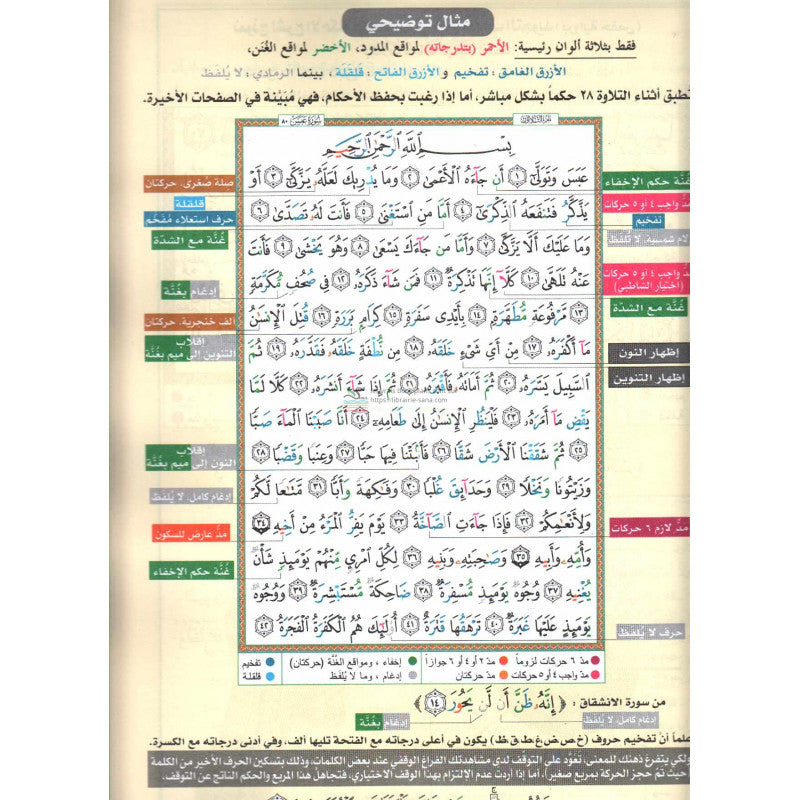 مثال توضيحي
فقط بثلاثة ألوان رئيسية: الأحمر (بتدرجاته) لمواقع المدود، الأخضر لمواقع الغُنَن،
الأزرق الغامق: تفخيم و الأزرق الفاتح: قلقلة، بينما الرمادي: لا يُلفَظ
نطبق أثناء التلاوة ٢٨ حكماً بشكل مباشر، أما إذا رغبت بحفظ الأحكام، فهي مُبَيَّنة في الصفحات الأخيرة.
سورة عبس ٨٠
بِسْمِ اللَّهِ الرَّحْمَٰنِ الرَّحِيمِ
عَبَسَ وَتَوَلَّىٰٓ ١ أَن جَآءَهُ ٱلْأَعْمَىٰ ٢ وَمَا يُدْرِيكَ لَعَلَّهُۥ يَزَّكَّىٰٓ ٣ أَوْ
يَذَّكَّرُ فَتَنفَعَهُ ٱلذِّكْرَىٰٓ ٤ أَمَّا مَنِ ٱسْتَغْنَىٰ ٥ فَأَنتَ لَهُۥ تَصَدَّىٰ ٦
وَمَا عَلَيْكَ أَلَّا يَزَّكَّىٰ ٧ وَأَمَّا مَن جَآءَكَ يَسْعَىٰ ٨ وَهُوَ يَخْشَىٰ ٩ فَأَنتَ
عَنْهُ تَلَهَّىٰ ١٠ كَلَّآ إِنَّهَا تَذْكِرَةٌ ١١ فَمَن شَآءَ ذَكَرَهُۥ ١٢ فِى صُحُفٍ مُّكَرَّمَةٍ
١٣ مَّرْفُوعَةٍ مُّطَهَّرَةٍۭ ١٤ بِأَيْدِى سَفَرَةٍ ١٥ كِرَامٍۭ بَرَرَةٍ ١٦ قُتِلَ ٱلْإِنسَٰنُ
مَآ أَكْفَرَهُۥ ١٧ مِنْ أَىِّ شَىْءٍ خَلَقَهُۥ ١٨ مِن نُّطْفَةٍ خَلَقَهُۥ فَقَدَّرَهُۥ ١٩ ثُمَّ
ٱلسَّبِيلَ يَسَّرَهُۥ ٢٠ ثُمَّ أَمَاتَهُۥ فَأَقْبَرَهُۥ ٢١ ثُمَّ إِذَا شَآءَ أَنشَرَهُۥ ٢٢ كَلَّا لَمَّا
يَقْضِ مَآ أَمَرَهُۥ ٢٣ فَلْيَنظُرِ ٱلْإِنسَٰنُ إِلَىٰ طَعَامِهِۦٓ ٢٤ أَنَّا صَبَبْنَا ٱلْمَآءَ صَبًّا
٢٥ ثُمَّ شَقَقْنَا ٱلْأَرْضَ شَقًّا ٢٦ فَأَنۢبَتْنَا فِيهَا حَبًّا ٢٧ وَعِنَبًا وَقَضْبًا ٢٨
وَزَيْتُونًا وَنَخْلًا ٢٩ وَحَدَآئِقَ غُلْبًا ٣٠ وَفَٰكِهَةً وَأَبًّا ٣١ مَّتَٰعًا لَّكُمْ
وَلِأَنْعَٰمِكُمْ ٣٢ فَإِذَا جَآءَتِ ٱلصَّآخَّةُ ٣٣ يَوْمَ يَفِرُّ ٱلْمَرْءُ مِنْ أَخِيهِ ٣٤
وَأُمِّهِۦ وَأَبِيهِ ٣٥ وَصَٰحِبَتِهِۦ وَبَنِيهِ ٣٦ لِكُلِّ ٱمْرِئٍ مِّنْهُمْ يَوْمَئِذٍ شَأْنٌ
يُغْنِيهِ ٣٧ وُجُوهٌ يَوْمَئِذٍ مُّسْفِرَةٌ ٣٨ ضَاحِكَةٌ مُّسْتَبْشِرَةٌ ٣٩ وَوُجُوهٌ
يَوْمَئِذٍ عَلَيْهَا غَبَرَةٌ ٤٠ تَرْهَقُهَا قَتَرَةٌ ٤١ أُو۟لَٰٓئِكَ هُمُ ٱلْكَفَرَةُ ٱلْفَجَرَةُ ٤٢
https://librairie-sana.com
غُنَّة حكم الإخفاء
مدّ واجب ٤ أو ٥ حركات
تفخيم
لام شمسية، لا تُلفَظ
مدّ واجب ٤ أو ٥ حركات
(اختيار الشاطبي)
غُنَّة مع الشدّة
إظهار النون
إظهار التنوين
مدّ لازم ٦ حركات
حرف لا يُلفَظ
صلة صغرى، حركتان
قلقلة
حرف استعلاء مُفخَّم
غُنَّة مع الشدّة
إدغام بغُنَّة
ألف خنجرية، حركتان
إقلاب
التنوين إلى ميم بغُنَّة
إقلاب
النون إلى ميم بغُنَّة
إدغام كامل، لا يُلفَظ
مدّ عارض للسكون
غُنَّة حكم الإخفاء
مدّ ٦ حركات لزوماً مدّ ٢ أو ٤ أو ٦ جوازاً إخفاء، ومواقع الغُنَّة (حركتان) تفخيم
مدّ واجب ٤ أو ٥ حركات مدّ حركتان إدغام، وما لا يُلفَظ قلقلة
من سورة الانشقاق: ﴿ إِنَّهُۥ ظَنَّ أَن لَّن يَحُورَ ١٤ ﴾
إدغام كامل، لا يُلفَظ إدغام بغُنَّة
علماً أنّ تفخيم حروف (خ،ص،ض،غ،ط،ق،ظ) يكون في أعلى درجاته مع الفتحة تليها ألف، وفي أدنى درجاته مع الكسرة.
ولكي يتفرغ ذهنك للمعنى، تعوّد على التوقف لدى مشاهدتك الفراغ الوقفي عند بعض الكلمات، وذلك بتسكين الحرف الأخير من الكلمة
حيث تم حجز الحركة بمربع صغير، أما إذا أردت عدم الإلتزام بهذا الوقف الاختياري، فتجاهل هذا المربع والحكم الناتج عن التوقف.